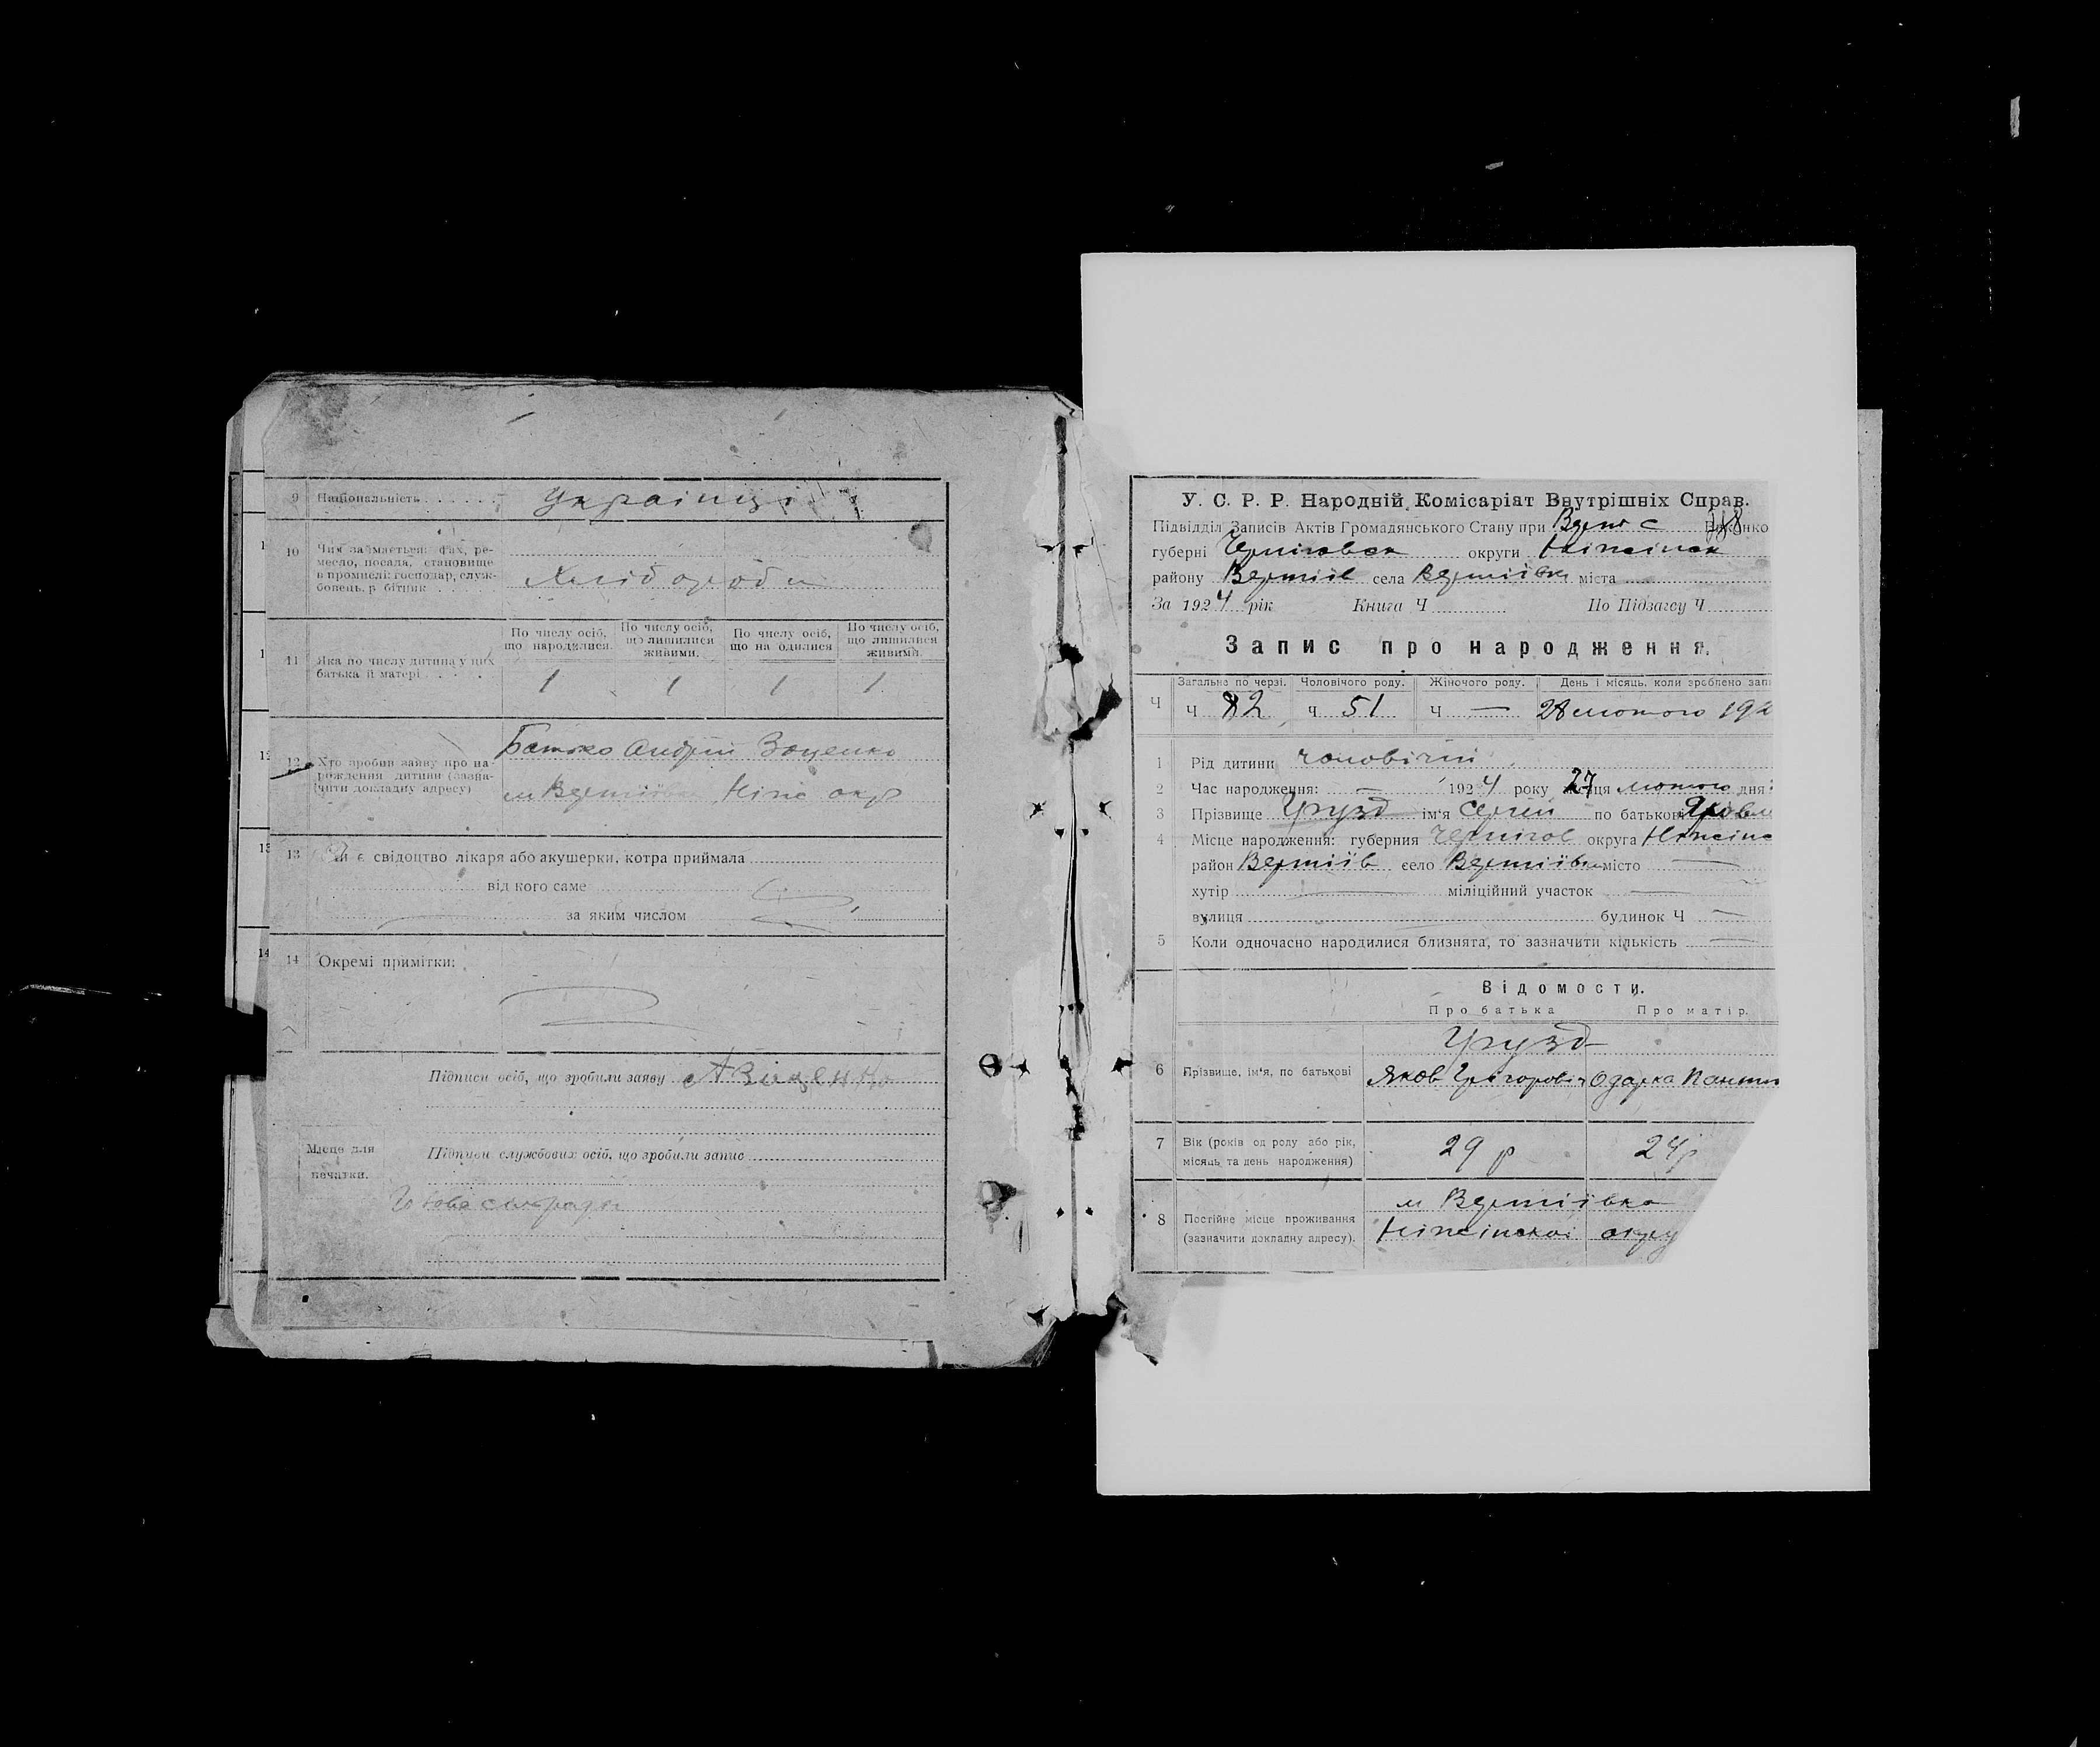 9 Національність Українці
10 Чим займається: фах, ре-
месло, посада, становище
в промислі: господар, служ-
бовець, р бітник
Хлібороби
11 Яка по числу дитина у цих
батька й матері
По числу осіб, що народилися.
По числу осіб, що лишилися живими.
По числу осіб, що на одилися
По числу осіб, що лишилися живими.
1 1 1 1
12 Хто зробив заяву про на-
рождення дитини (зазна-
чити докладну адресу)
Батько Андрій Зоценко
м Вертіївка Ніжс окр
13 Чи є свідоцтво лікаря або акушерки, котра приймала
від кого саме
за яким числом
14 Окремі примітки:
Підписи осіб, що зробили заяву
Місце для
печатки.
Підписи службових осіб, що зробили запис
У. С. Р. Р. Народній Комісаріат Внутрішніх Справ.
Підвідділ Записів Актів Громадянського Стану при
губерні Черніговск округи Ніжинск
району Вертіїв села Вертіївки міста
За 1924 рік Книга Ч По Підзагсу Ч
Запис про народження.
Загальне по черзі. Чоловічого роду. Жіночого роду. День і місяць, коли зроблено зап
Ч Ч 82 Ч 51 Ч — 28 лютого 192
1 Рід дитини чоловічий
2 Час народження: — 1924 року 27 лютого дня
3 Прізвище Грузд ім'я Сергій по батькові Яковл
4 Місце народження: губерния Чернігов округа Ніжинс
район Вертіїв село Вертіївка місто —
хутір — міліційний участок —
вулиця будинок Ч —
5 Коли одночасно народилися близнята, то зазначити кількість —
Відомости.
Про батька Про матір.
Грузд
6 Прізвище, ім'я, по батькові Яков Григорович Одарка
7 Вік (років од роду або рік,
місяць та день народження)
29 р 24 р
8 Постійне місце проживання
(зазначити докладну адресу).
м Вертіївка
Ніжінської окру